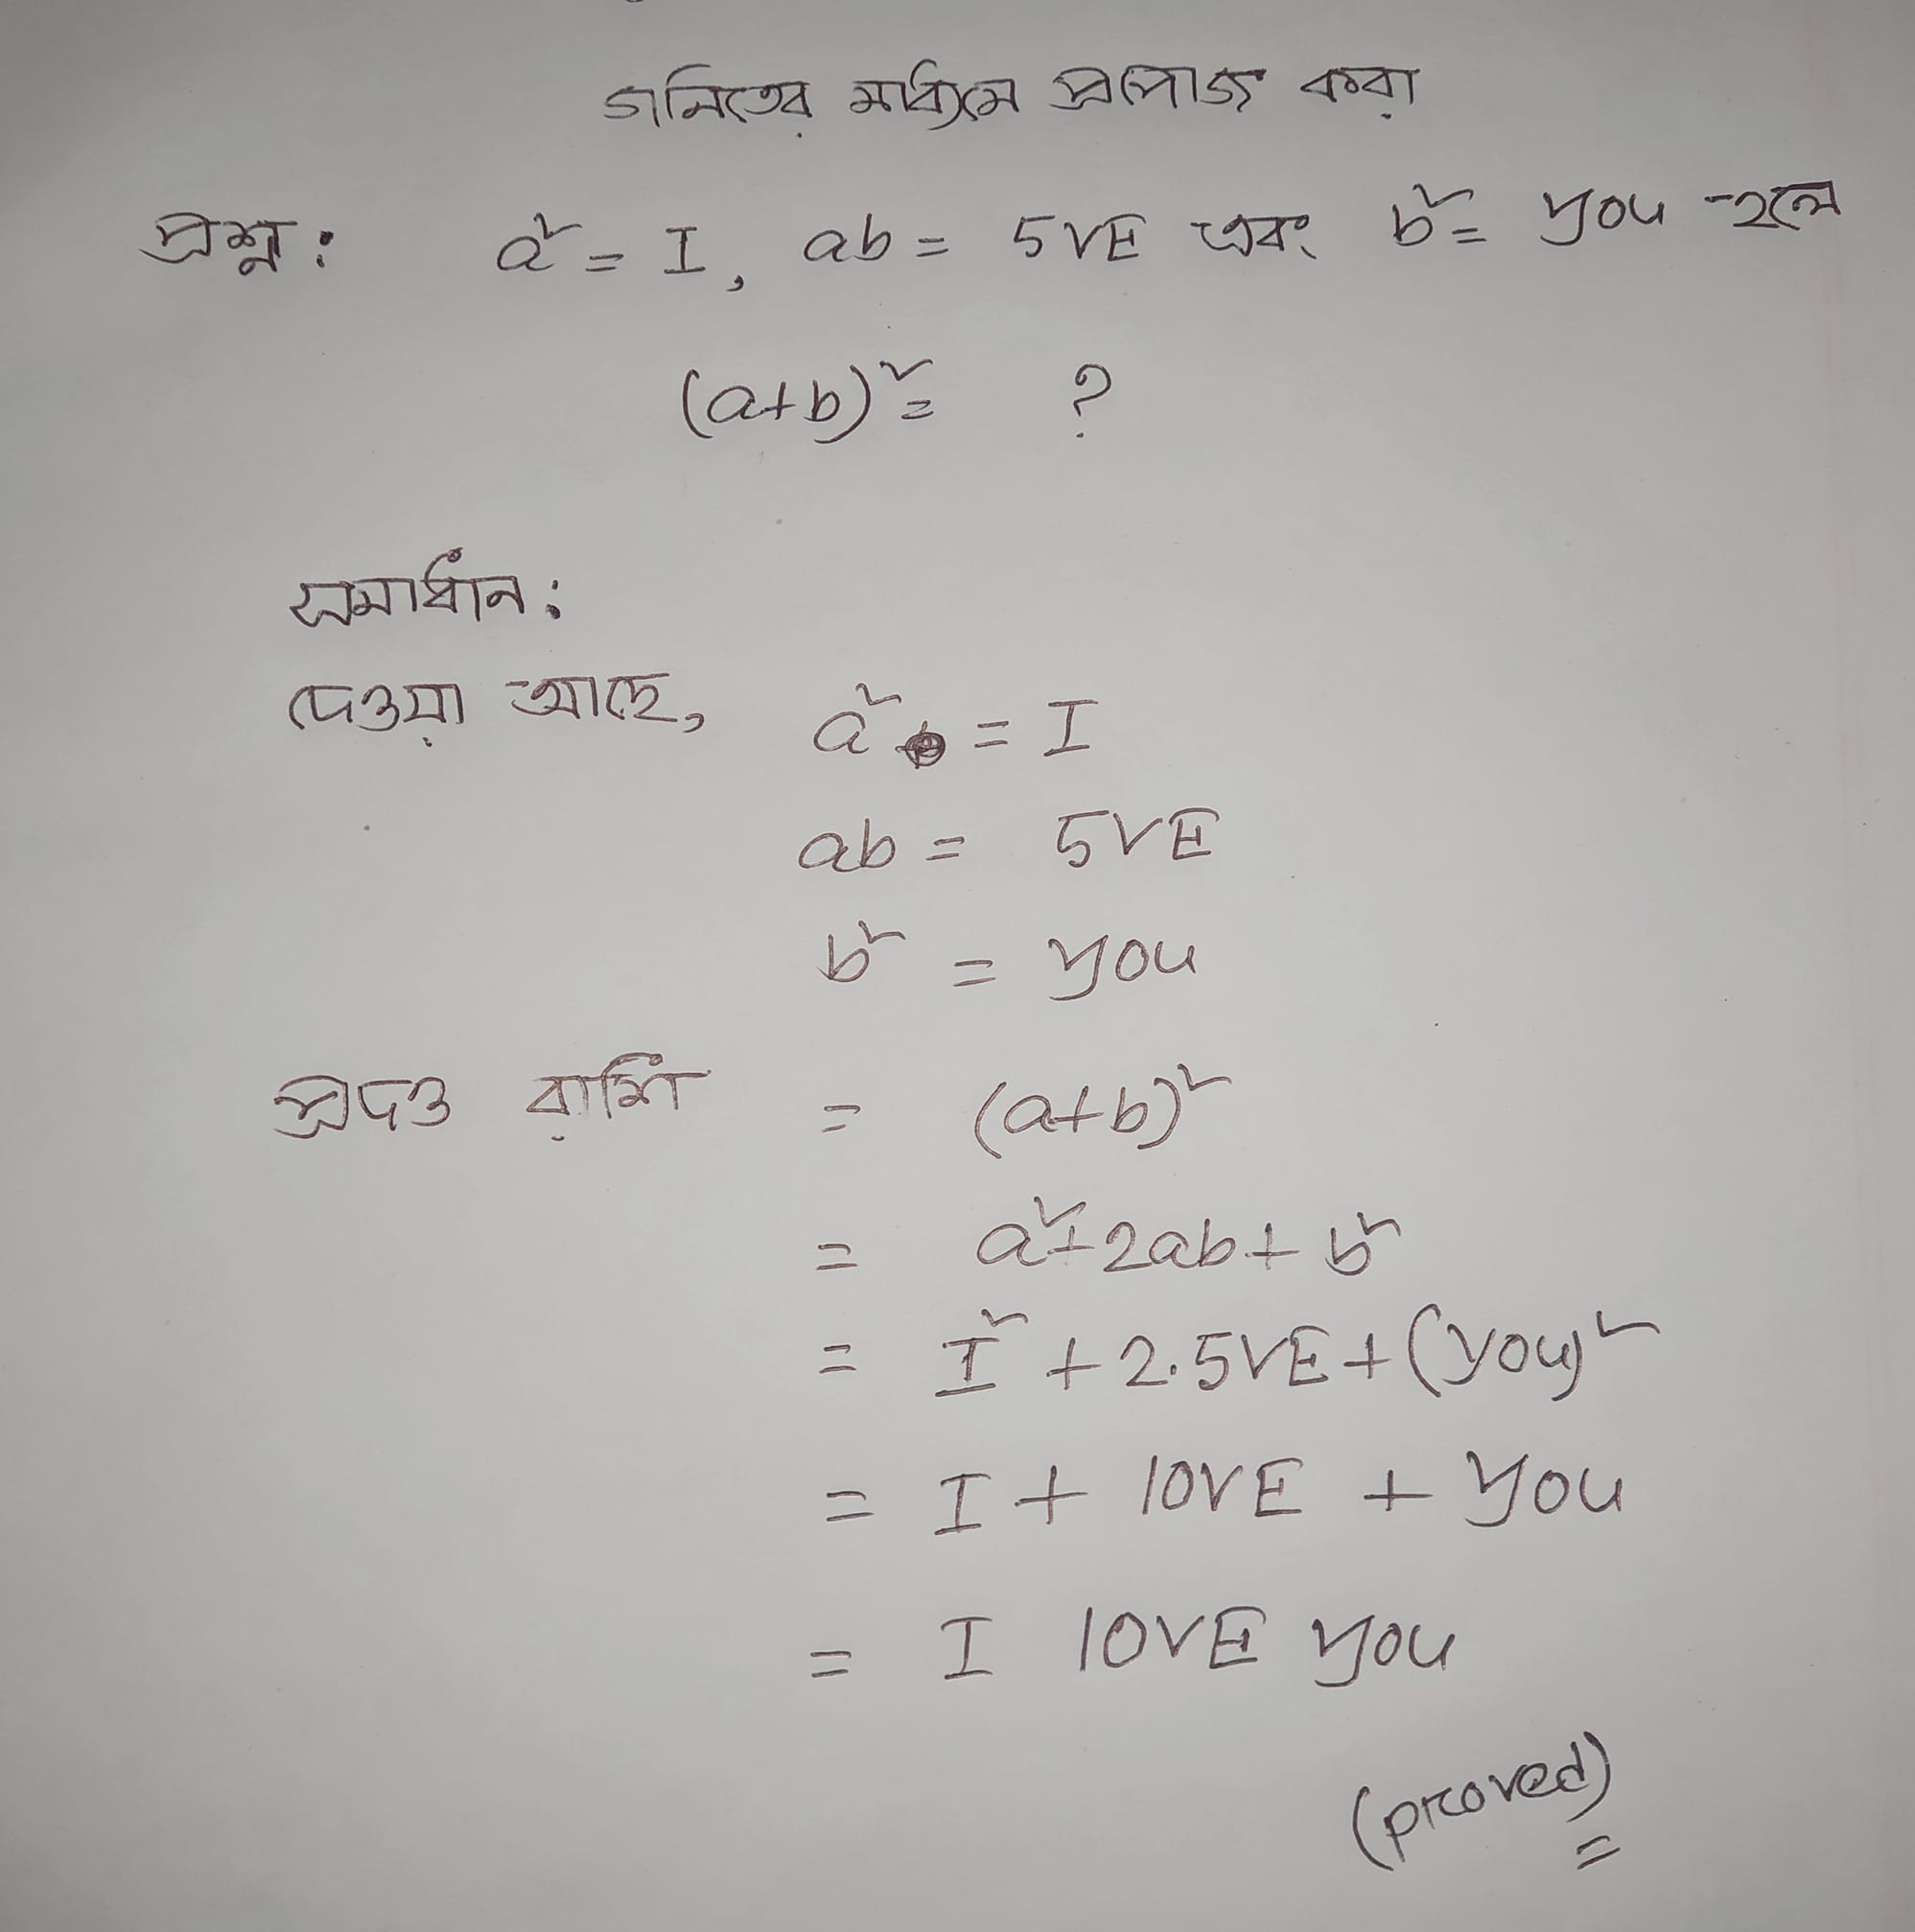 গনিতের মাধ্যমে প্রপোজ করা
প্রশ্ন: a² = I, ab = 5VE এবং b² = you হলে
(a+b)² = ?
সমাধান:
দেওয়া আছে, a² = I
ab = 5VE
b² = you
প্রদত্ত রাশি = (a+b)²
= a²+2ab+b²
= I² + 2.5VE+(you)²
= I + 10VE + you
= I 10VE you
(proved)